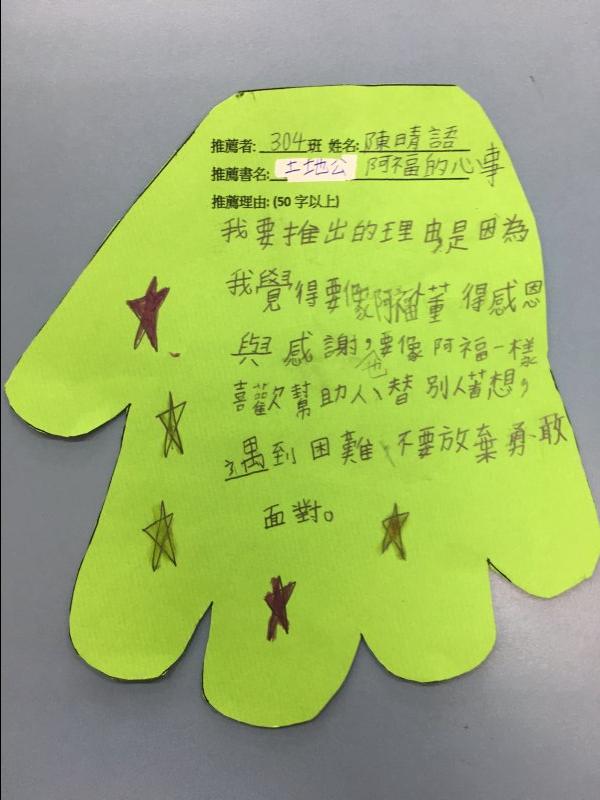 推薦者: 304班 姓名: 陳晴語
推薦書名: 土地公 阿福的心事
推薦理由: (50 字以上)
我要推出的理由,是因為
我覺得要像阿福懂得感恩
與感謝,要像阿福一樣
他
喜歡幫助人、替別人著想,
遇到困難、不要放棄勇敢
面對。